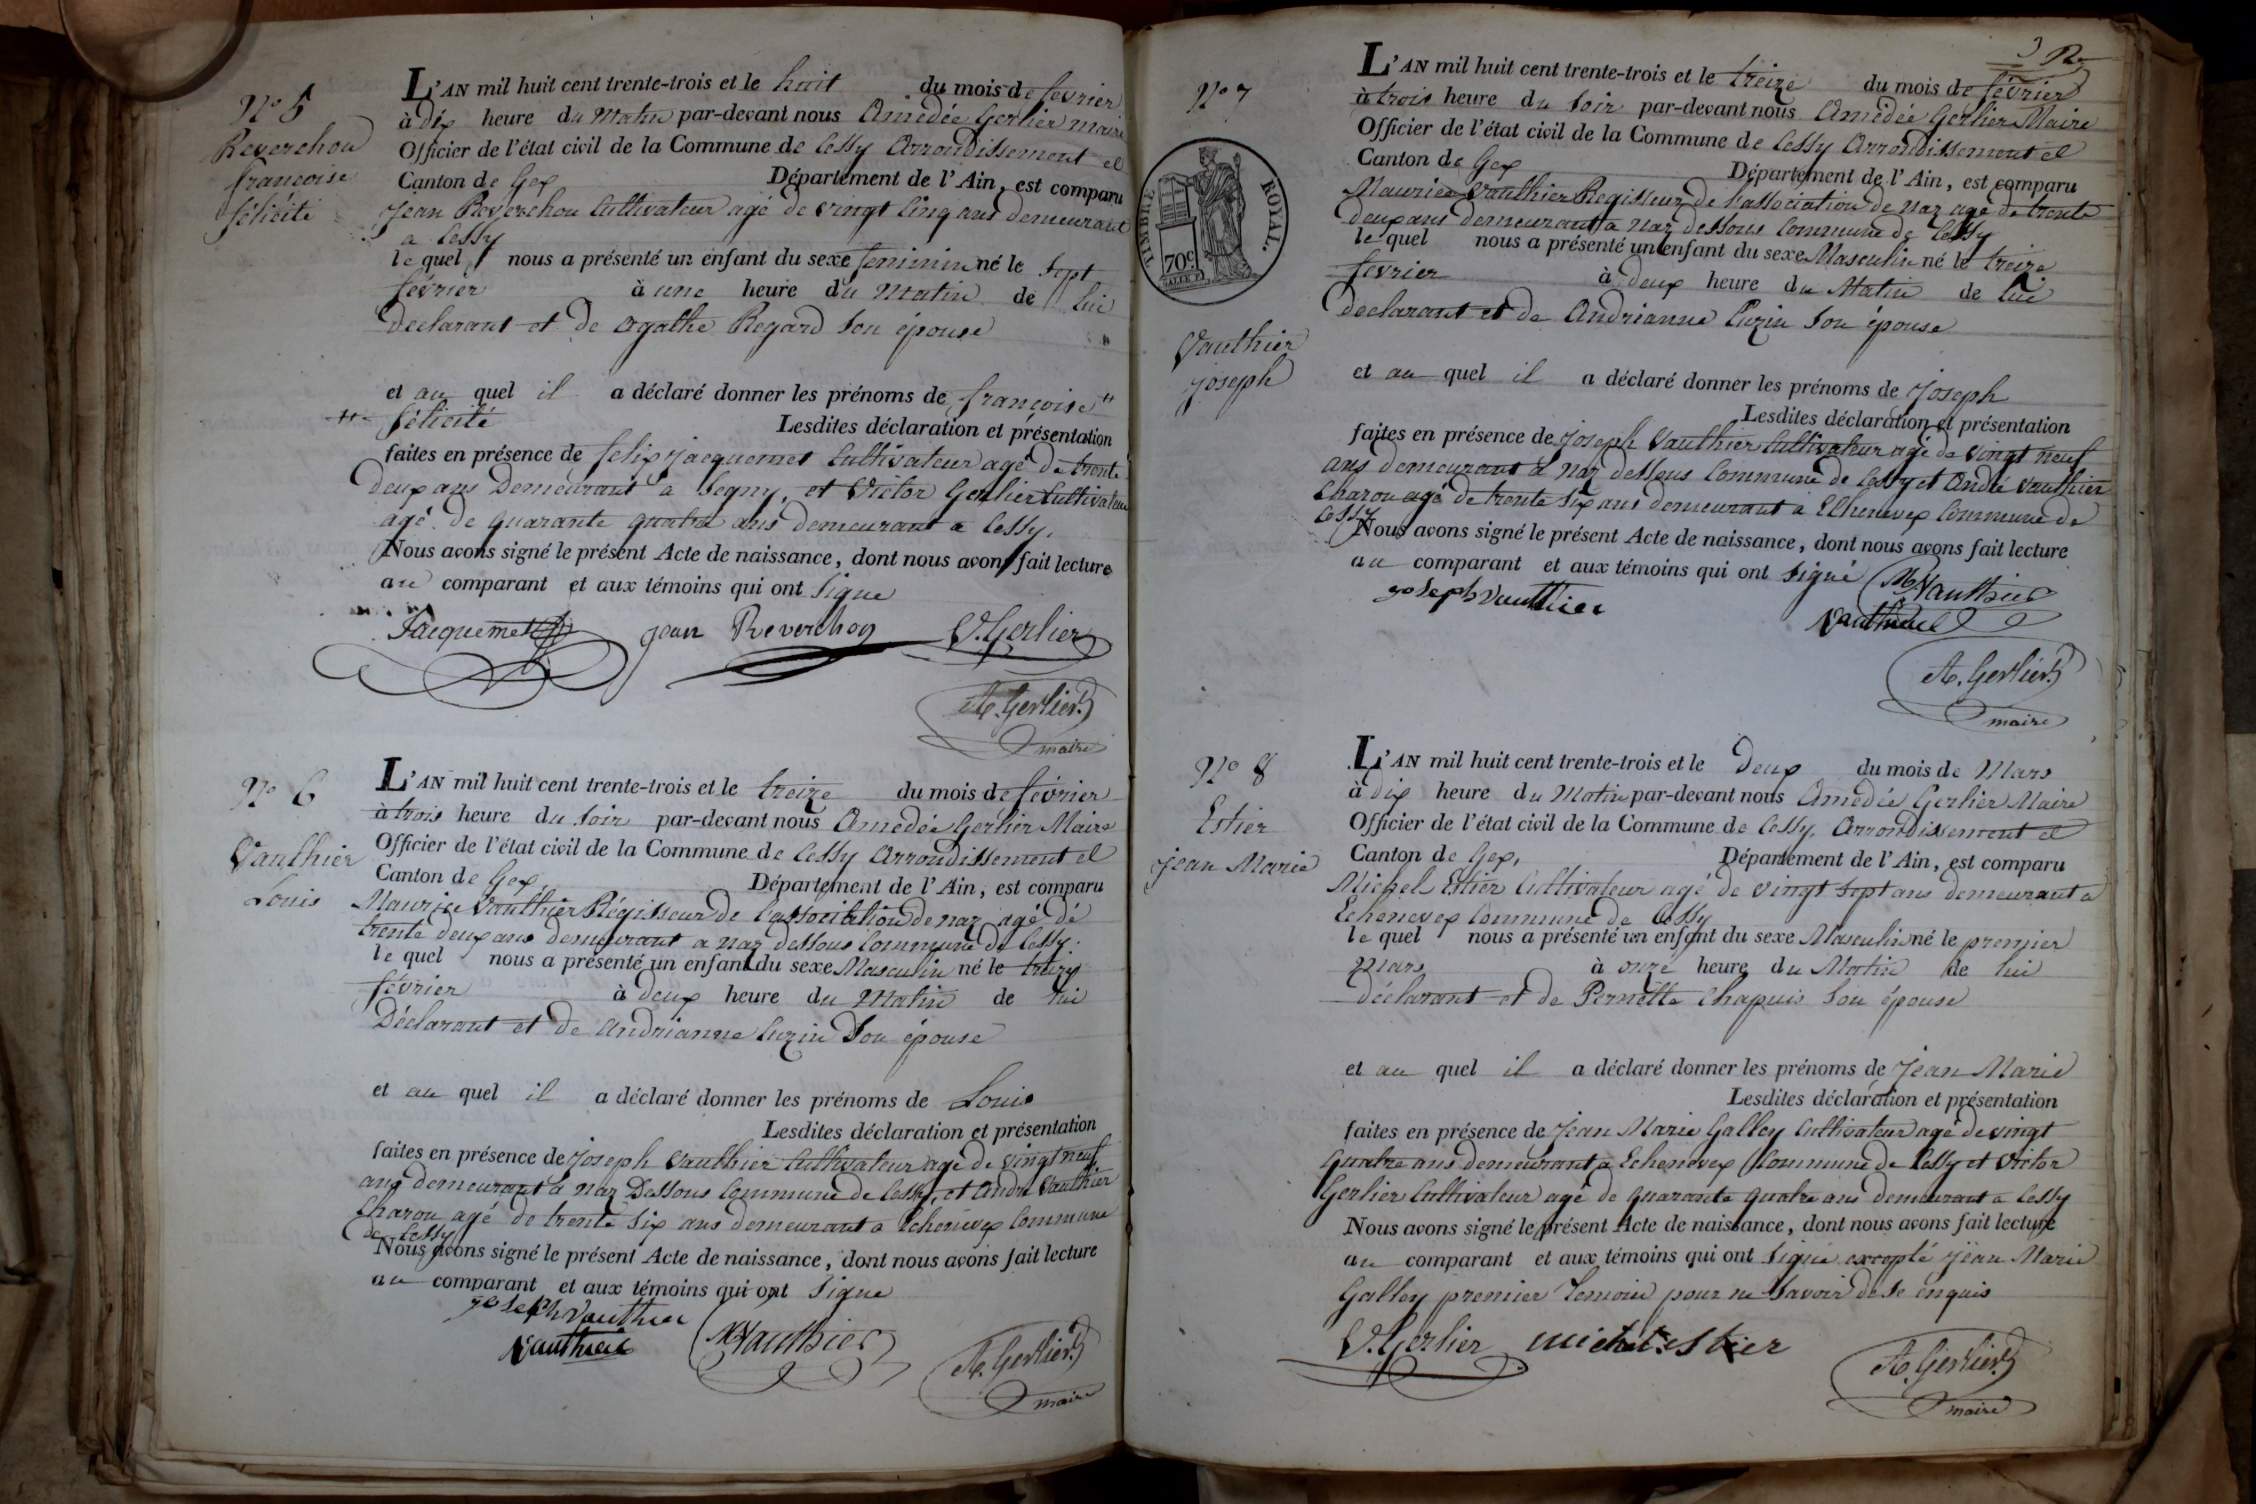 N° 5
Reverchon
françoise
félicité
L'AN mil huit cent trente-trois et le huit du mois de février
à dix heure du Matin par-devant nous Amédée Gerlier maire
Officier de l'état civil de la Commune de Cessy Arrondissement et
Canton de Gex Département de l'Ain, est comparu
Jean Reverchon Cultivateur agé de vingt Cinq ans demeurant
a Cessy
le quel nous a présenté un enfant du sexe feminin né le sept
février à une heure du Matin de lui
declarant et de Agathe Regard Son épouse
et au quel il a déclaré donner les prénoms de françoise "
" félicité Lesdites déclaration et présentation
faites en présence de felix jacquemet Cultivateur agé de trente
deux ans Demeurant a Segny, et Victor Gerlier Cultivateur
agé de quarante quatre ans demeurant a Cessy.
Nous avons signé le présent Acte de naissance, dont nous avons fait lecture
au comparant et aux témoins qui ont Signe
Jacquemet jean Reverchon V. Gerlier
A. Gerlier
maire
N° 6
Vauthier
Louis
L'AN mil huit cent trente-trois et le treize du mois de février
à trois heure du Soir par-devant nous Amedée Gerlier Maire
Officier de l'état civil de la Commune de Cessy Arrondissement et
Canton de Gex, Département de l'Ain, est comparu
Maurice Vauthier Régisseur de l'association de naz agé de
trente deux ans demeurant a naz dessous Commune de Cessy.
le quel nous a présenté un enfant du sexe Masculin né le treize
février à deux heure du Matin de lui
Déclarant et de Andrianne Cuzin Son épouse
et au quel il a déclaré donner les prénoms de Louis
Lesdites déclaration et présentation
faites en présence de Joseph Vauthier Cultivateur agé de vingt neuf
ans demeurant a naz Dessous Commune de Cessy, et André Vauthier
Charon agé de trente Six ans demeurant a Echenevex Commune
de Cessy
Nous avons signé le présent Acte de naissance, dont nous avons fait lecture
au comparant et aux témoins qui ont Signe
joseph vauthier
vauthier M Vauthier A. Gerlier
maire
3
N° 7
TIMBRE ROYAL.
70c
Vauthier
joseph
L'AN mil huit cent trente-trois et le treize du mois de février
à trois heure du Soir par-devant nous Amédée Gerlier Maire
Officier de l'état civil de la Commune de Cessy Arrondissement et
Canton de Gex Département de l'Ain, est comparu
Maurice Vauthier Regisseur de l'association de naz agé de trente
deux ans demeurant a naz dessous Commune de Cessy
le quel nous a présenté un enfant du sexe Masculin né le treize
février à deux heure du Matin de lui
declarant et de Andrianne Cuzin Son épouse
et au quel il a déclaré donner les prénoms de Joseph
Lesdites déclaration et présentation
faites en présence de Joseph Vauthier Cultivateur agé de vingt neuf
ans demeurant a naz dessous Commune de Cessy et André Vauthier
Charon agé de trente Six ans demeurant a Echenevex Commune de
Cessy
Nous avons signé le présent Acte de naissance, dont nous avons fait lecture
au comparant et aux témoins qui ont Signé M Vauthier
joseph vauthier
vauthier
A. Gerlier
maire
N° 8
Estier
jean Marie
L'AN mil huit cent trente-trois et le deux du mois de Mars
à dix heure du Matin par-devant nous Amédée Gerlier Maire
Officier de l'état civil de la Commune de Cessy, Arrondissement et
Canton de Gex, Département de l'Ain, est comparu
Michel Estier Cultivateur agé de vingt Sept ans demeurant a
Echenevex Commune de Cessy
le quel nous a présenté un enfant du sexe Masculin né le premier
Mars à onze heure du Matin de lui
déclarant et de Pernette Chapuis Son épouse
et au quel il a déclaré donner les prénoms de Jean Marie
Lesdites déclaration et présentation
faites en présence de Jean Marie Galley Cultivateur agé de vingt
quatre ans demeurant a Echenevex Commune de Cessy et Victor
Gerlier Cultivateur agé de quarante quatre ans demeurant a Cessy
Nous avons signé le présent Acte de naissance, dont nous avons fait lecture
au comparant et aux témoins qui ont Signé excepté jean Marie
Galley premier temoin pour ne Savoir de Se enquis
V. Gerlier michel estier A. Gerlier
maire